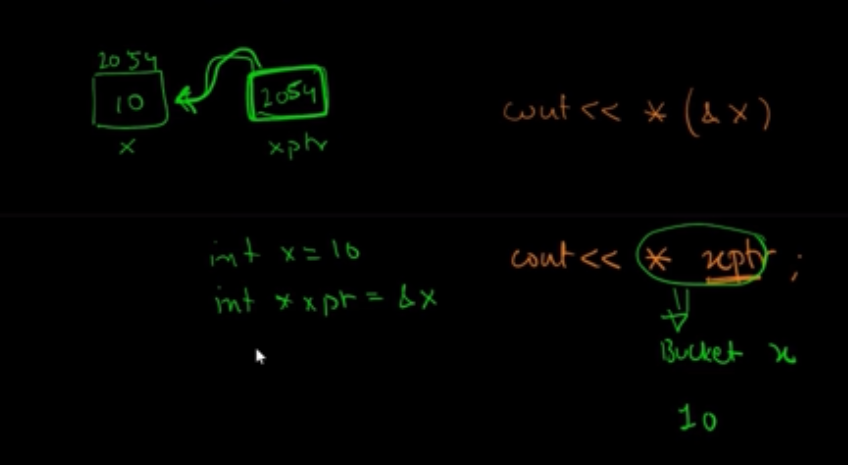 2054
10
2054
x
xptr
cout << * (&x)
int x = 10
int * xptr = &x
cout << * xptr ;
Bucket x
10